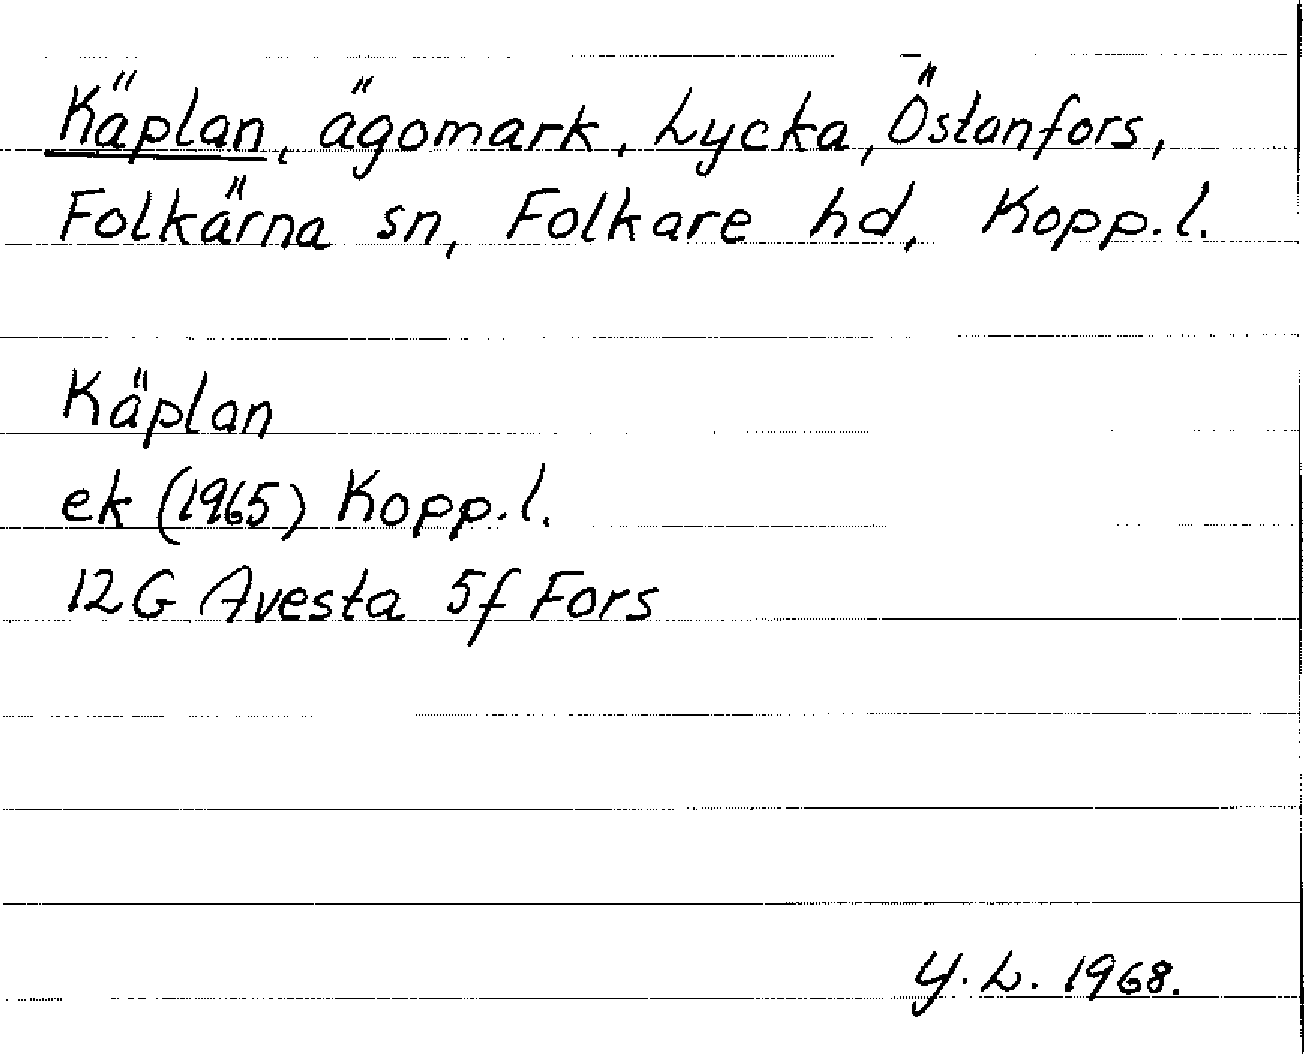 Käplan, ägomark, Lycka, Östanfors,
Folkärna sn, Folkare hd, Kopp.l.
Käplan
ek (1965) Kopp.l.
12G Avesta 5f Fors
Y.L. 1968.